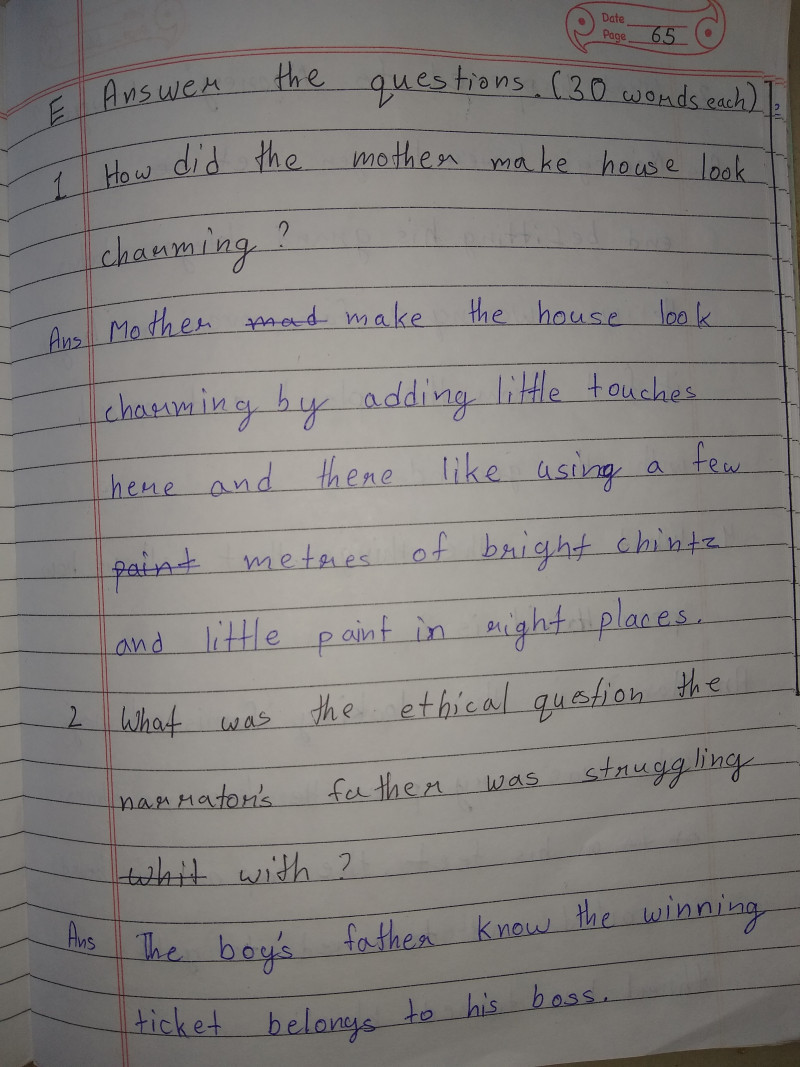 Date
Page 65
E Answer the questions. (30 words each)
1 How did the mother make house look
charming ?
Ans Mother mad make the house look
charming by adding little touches
here and there like using a few
paint metres of bright chintz
and little paint in right places.
2 What was the ethical question the
narrator's father was struggling
whit with ?
Ans The boy's father know the winning
ticket belongs to his boss.